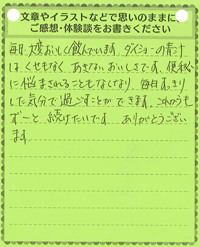 文章やイラストなどで思いのままに
ご感想・体験談をお書きください
毎日、大変おいしく飲んでいます。ダイショーの青汁
はくせもなく、あきないおいしさです。便秘
に悩まされることもなくなり、毎日すっきり
した気分で過ごすことができます。これからも
ず〜と続けたいです。ありがとうござい
ます。